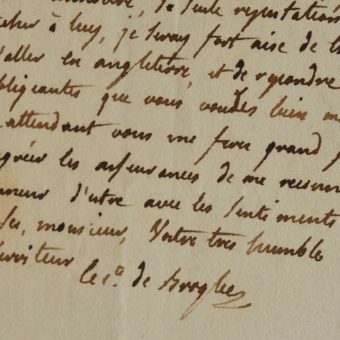 la seule reputation
cher à luy, je seray fort aise de
d'aller en angleterre, et de rejoindre
bligeantes que vous voudes bien m
attendant vous me feres grand
agréer les assurances de ma reconn
neur d'etre avec les sentiments
monsieur, Votre tres humble
serviteur
le c.te de Broglie